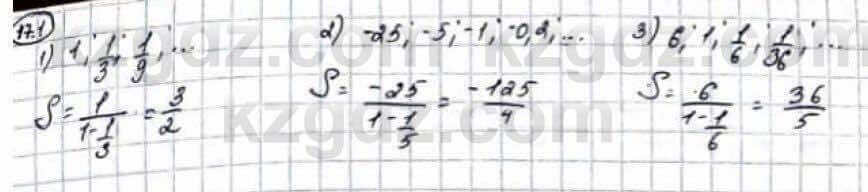 17.1
1) 1; 1/3; 1/9; ...
S = 1/(1 - 1/3) = 3/2
2) -25; -5; -1; -0,2; ...
S = -25/(1 - 1/5) = -125/4
3) 6; 1; 1/6; 1/36; ...
S = 6/(1 - 1/6) = 36/5
kzgdz.com
kzgdz.com